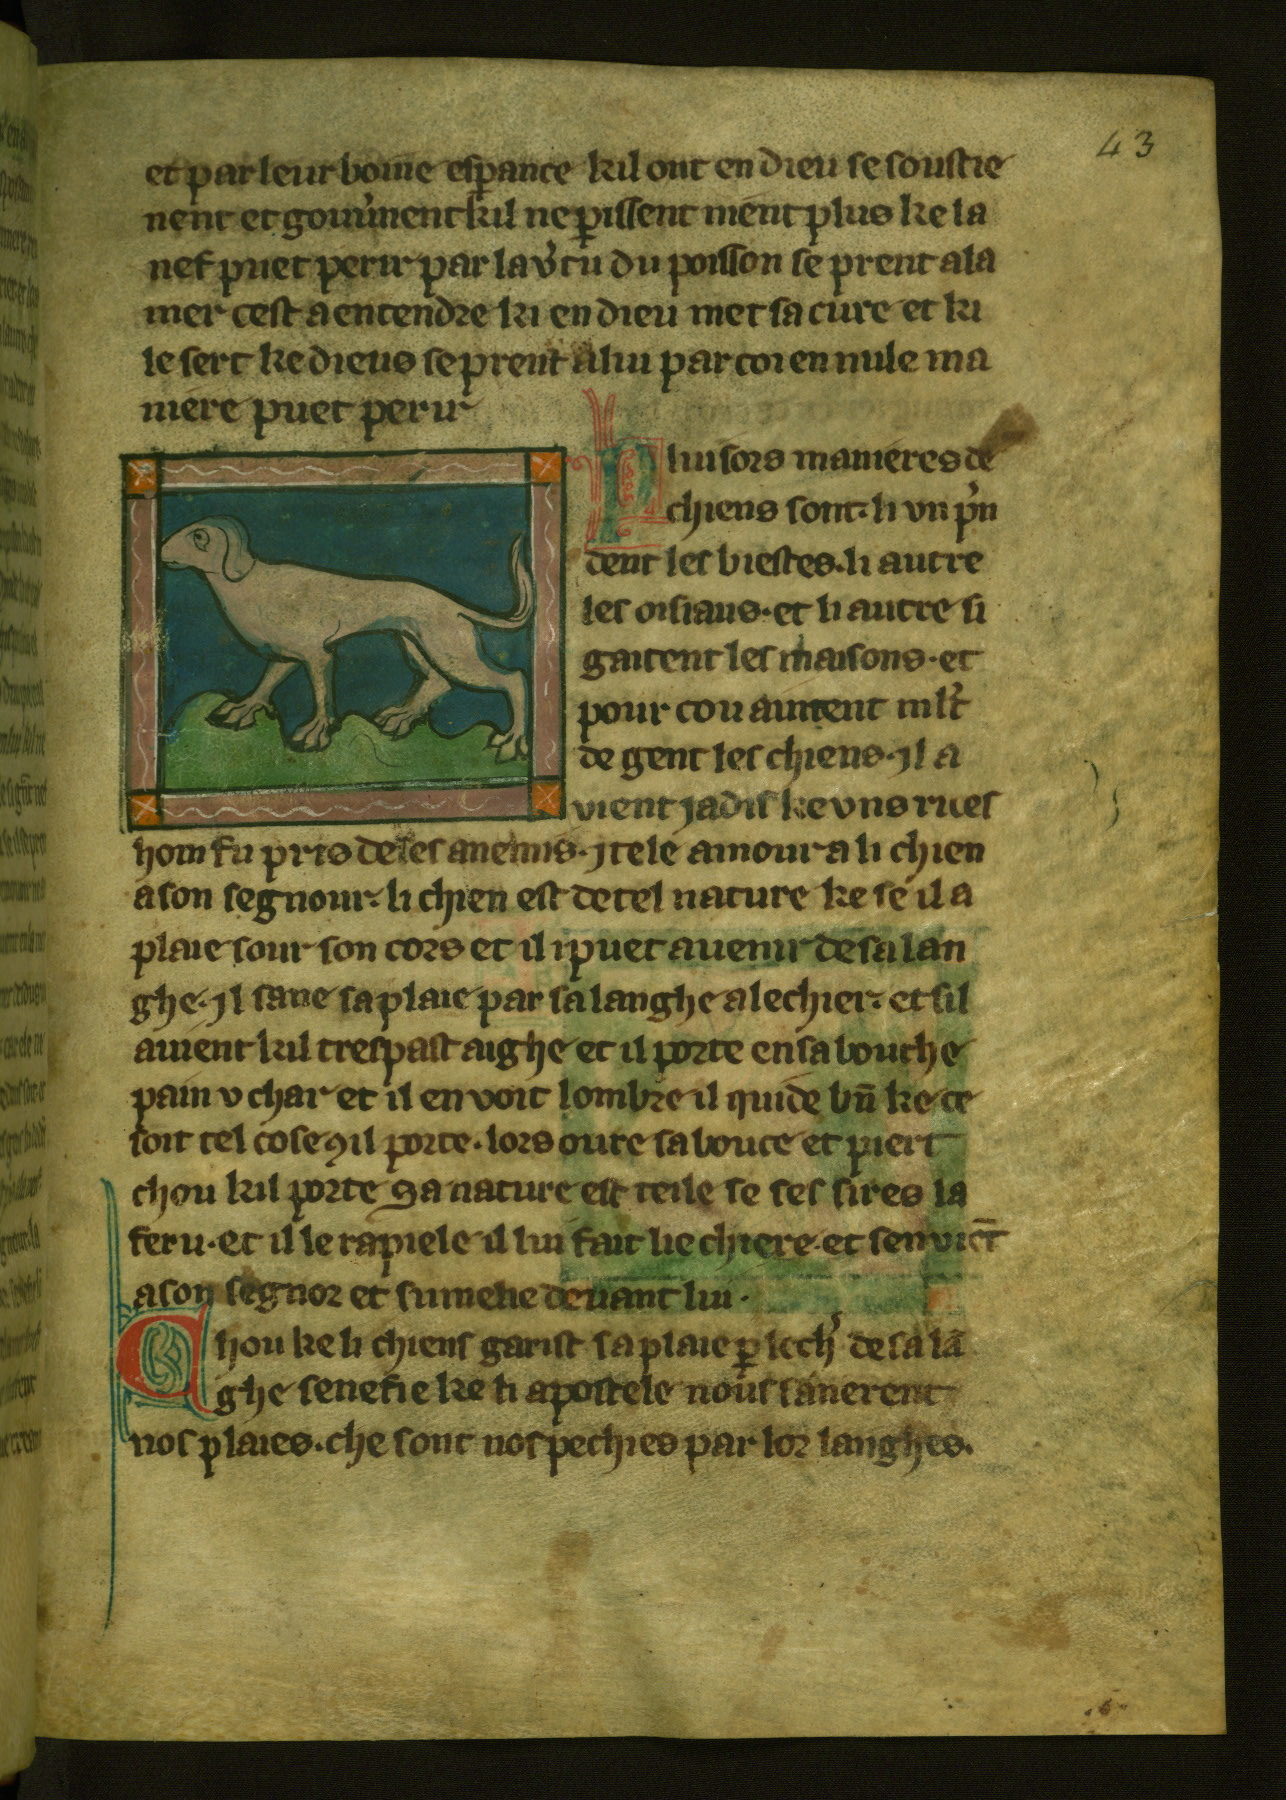 43
et par leur boine esꝑance kil ont en dieu se soustie
nent et gouu̓nent kil ne ꝑissent nient plus ke la
nef puet perir par la v̓tu du poisson se prent a la
mer cest a entendre ki en dieu met sa cure et ki
le sert ke dieus se prent a lui par coi en nule ma
niere puet perir
Pluisors manieres de
chiens sont. li vn p̓n
dent les biestes. li autre
les oisiaus. et li autre si
gaitent les maisons. et
pour cou aiment ml̓t
de gent les chiens. jl a
vient jadis ke vns rices
hom fu pris de ses anemis. jtele amour a li chien
a son segnour. li chien est de tel nature ke se il a
plaie sour son cors et il i puet auenir de sa lan
ghe. jl sane sa plaie par sa langhe a lechier. et sil
auient kil trespast aighe et il porte en sa bouche
pain v char et il en voit lombre il quide bn̄ ke ce
soit tel cose ꝯ il porte. lors oure sa bouce et piert
chou kil porte sa nature est teile se ses sires la
feru. et il le rapiele il lui fait lie chiere. et sen viēt
a son segnor et sumelie deuant lui.
Chou ke li chiens garist sa plaie ꝑ lech̓ de sa lā
ghe senefie ke li apostele nous sanerent
nos plaies. che sont nos pechies par lor langhes.